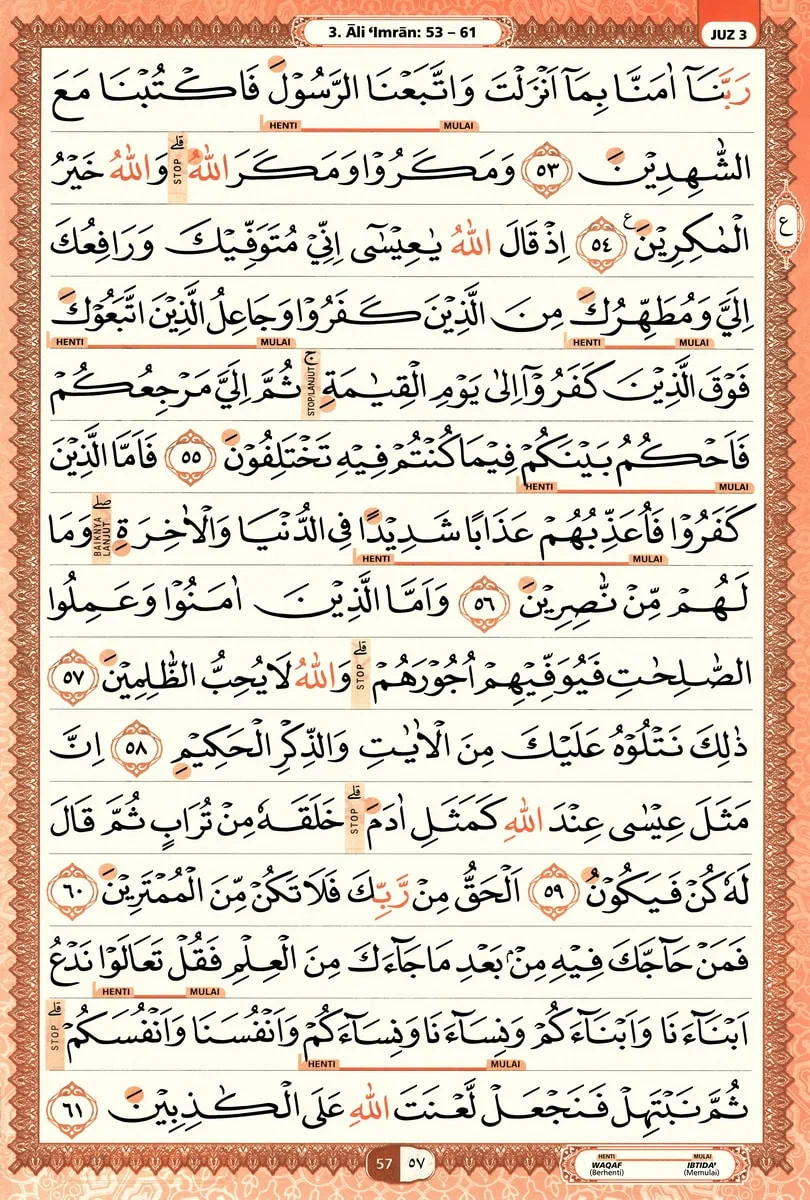 3. Āli ‘Imrān: 53 – 61
JUZ 3
رَبَّنَآ اٰمَنَّا بِمَآ اَنْزَلْتَ وَاتَّبَعْنَا الرَّسُوْلَ فَاكْتُبْنَا مَعَ
HENTI MULAI
الشّٰهِدِيْنَ ٥٣ وَمَكَرُوْا وَمَكَرَ اللّٰهُ ۗ وَاللّٰهُ خَيْرُ
STOP
الْمٰكِرِيْنَ ࣖ ٥٤ اِذْ قَالَ اللّٰهُ يٰعِيْسٰٓى اِنِّيْ مُتَوَفِّيْكَ وَرَافِعُكَ
ع
اِلَيَّ وَمُطَهِّرُكَ مِنَ الَّذِيْنَ كَفَرُوْا وَجَاعِلُ الَّذِيْنَ اتَّبَعُوْكَ
HENTI MULAI HENTI MULAI
فَوْقَ الَّذِيْنَ كَفَرُوْٓا اِلٰى يَوْمِ الْقِيٰمَةِ ۚ ثُمَّ اِلَيَّ مَرْجِعُكُمْ
STOP/LANJUT
فَاَحْكُمُ بَيْنَكُمْ فِيْمَا كُنْتُمْ فِيْهِ تَخْتَلِفُوْنَ ٥٥ فَاَمَّا الَّذِيْنَ
HENTI MULAI
كَفَرُوْا فَاُعَذِّبُهُمْ عَذَابًا شَدِيْدًا فِى الدُّنْيَا وَالْاٰخِرَةِ ۖ وَمَا
BAIKNYA LANJUT
HENTI MULAI
لَهُمْ مِّنْ نّٰصِرِيْنَ ٥٦ وَاَمَّا الَّذِيْنَ اٰمَنُوْا وَعَمِلُوا
الصّٰلِحٰتِ فَيُوَفِّيْهِمْ اُجُوْرَهُمْ ۗ وَاللّٰهُ لَا يُحِبُّ الظّٰلِمِيْنَ ٥٧
STOP
ذٰلِكَ نَتْلُوْهُ عَلَيْكَ مِنَ الْاٰيٰتِ وَالذِّكْرِ الْحَكِيْمِ ٥٨ اِنَّ
مَثَلَ عِيْسٰى عِنْدَ اللّٰهِ كَمَثَلِ اٰدَمَ ۗ خَلَقَهٗ مِنْ تُرَابٍ ثُمَّ قَالَ
STOP
لَهٗ كُنْ فَيَكُوْنُ ٥٩ اَلْحَقُّ مِنْ رَّبِّكَ فَلَا تَكُنْ مِّنَ الْمُمْتَرِيْنَ ٦٠
فَمَنْ حَاۤجَّكَ فِيْهِ مِنْۢ بَعْدِ مَا جَاۤءَكَ مِنَ الْعِلْمِ فَقُلْ تَعَالَوْا نَدْعُ
HENTI MULAI
اَبْنَاۤءَنَا وَاَبْنَاۤءَكُمْ وَنِسَاۤءَنَا وَنِسَاۤءَكُمْ وَاَنْفُسَنَا وَاَنْفُسَكُمْ ۗ
STOP
HENTI MULAI
ثُمَّ نَبْتَهِلْ فَنَجْعَلْ لَّعْنَتَ اللّٰهِ عَلَى الْكٰذِبِيْنَ ٦١
57 ٥٧
HENTI MULAI
WAQAF IBTIDA'
(Berhenti) (Memulai)